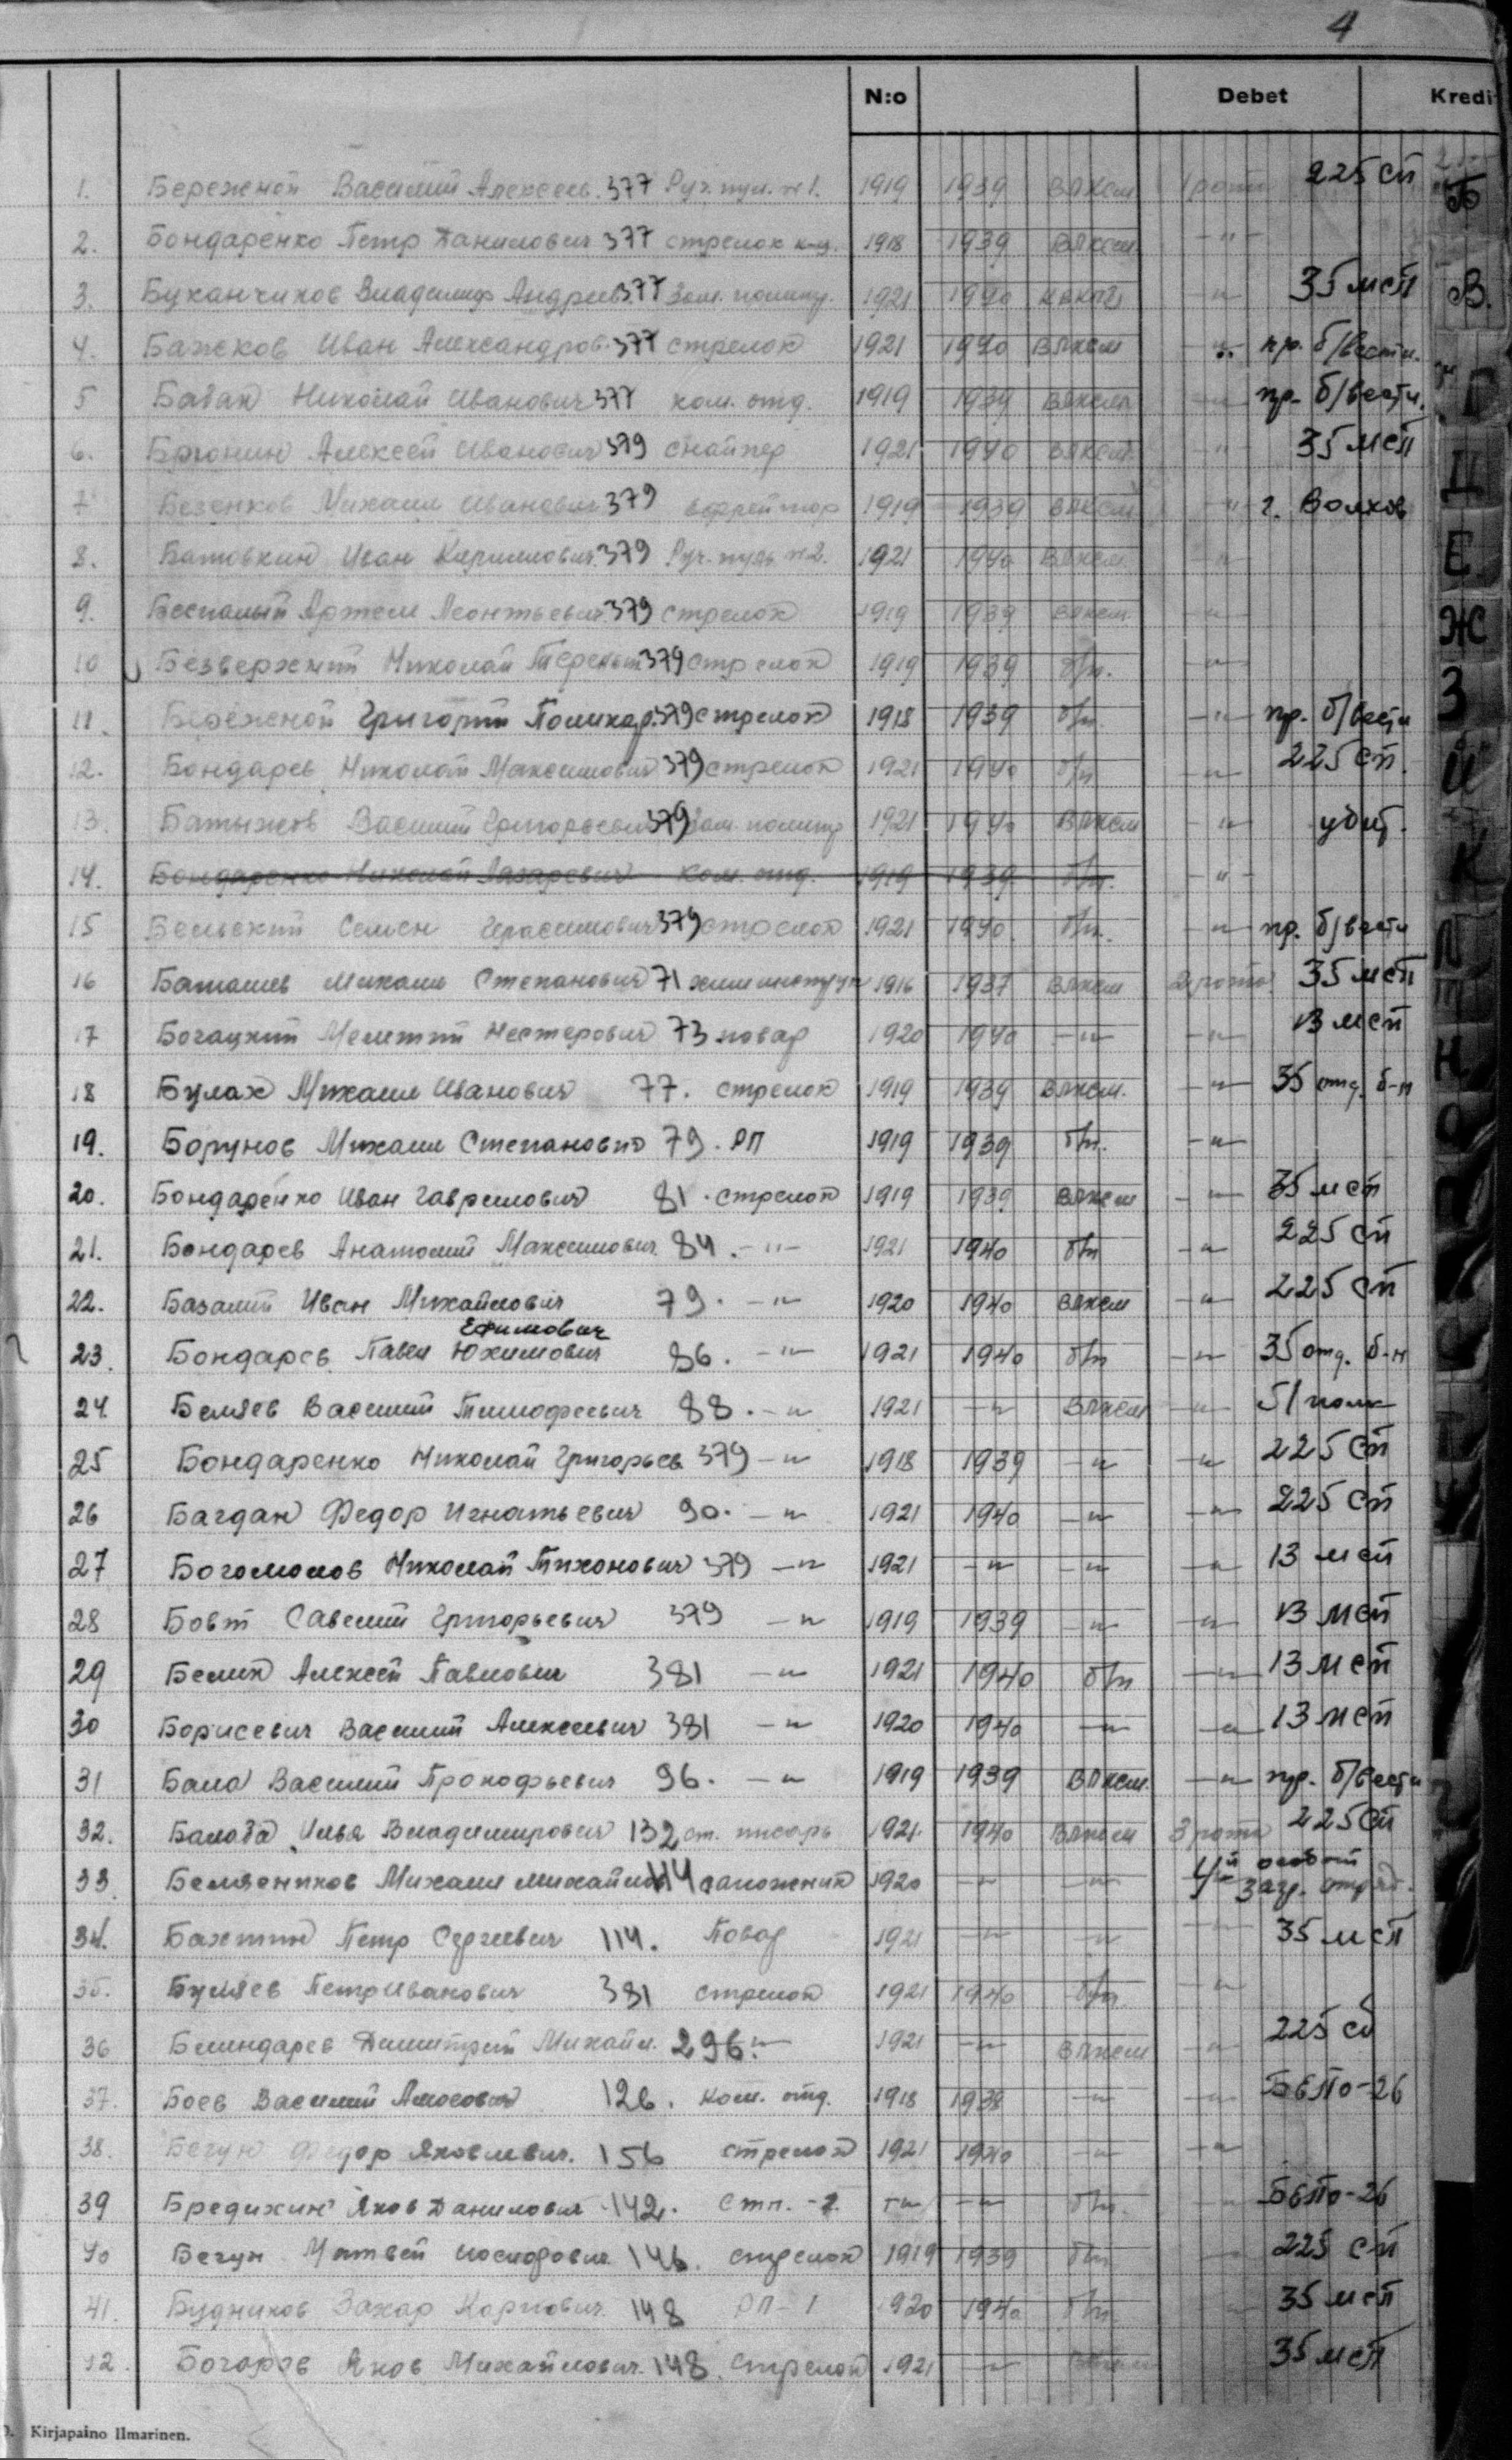 4
N:o Debet Kredi
1. Бережной Василий Алексеев. 377 Руч. пул. н1. 1919 1939 ВЛКСМ 1 рота 225 сп
2. Бондаренко Петр Данилович 377 стрелок 1918 1939 ВЛКСМ -"-
3. Буканчиков Владимир Андреев 377 Зам. политр. 1921 1940 -"- 35 мсп
4. Бажков Иван Александров. 377 стрелок 1921 1940 ВЛКСМ -"- пр. б/вести.
5 Бабак Николай Иванович 377 ком. отд. 1919 1939 ВЛКСМ -"- пр. б/вести.
6. Брюнин Алексей Иванович 379 снайпер 1921 1940 ВЛКСМ -"- 35 мсп
7 Безенков Михаил Иванович 379 ефрейтор 1919 1939 ВЛКСМ -"- г. Волхов
8. Батовкин Иван Кириллович 379 Руч. пул. н2. 1921 1940 ВЛКСМ -"-
9. Беспалый Артем Леонтьевич 379 стрелок 1919 1939 ВЛКСМ -"-
10 Безверхний Николай Терент 379 стрелок 1919 1939 б/п. -"-
11. Бережной Григорий Поликар. 379 стрелок 1918 1939 б/п. -"- пр. б/вести
12. Бондарев Николай Максимович 379 стрелок 1921 1940 б/п -"- 225 сп.
13. Батыжов Василий Григорьевич 379 Зам. политр 1921 1940 ВЛКСМ -"- убит.
14. Бондаренко Николай Лазаревич ком. отд. 1919 1939 б/п. -"-
15 Бельский Семен Герасимович 379 стрелок 1921 1940 б/п. -"- пр. б/вести
16 Баташев Михаил Степанович 71 химинструк 1916 1937 ВЛКСМ 2 рота 35 мсп
17 Богацкий Мелетий Нестерович 73 повар 1920 1940 -"- -"- 13 мсп
18 Булах Михаил Иванович 77. стрелок 1919 1939 ВЛКСМ. -"- 35 отд. б-н
19. Борунов Михаил Степанович 79. РП 1919 1939 б/п. -"-
20. Бондаренко Иван Гаврилович 81. стрелок 1919 1939 ВЛКСМ -"- 35 мсп
21. Бондарев Анатолий Максимович. 84. -"- 1921 1940 б/п -"- 225 сп
22. Базалий Иван Михайлович 79. -"- 1920 1940 ВЛКСМ -"- 225 сп
Ефимович
23. Бондарев Павел Юхимович 86. -"- 1921 1940 б/п -"- 35 отд. б-н
24. Беляев Василий Тимофеевич 88. -"- 1921 -"- ВЛКСМ -"- 51 полк
25 Бондаренко Николай Григорьев. 379 -"- 1918 1939 -"- -"- 225 сп
26 Багдан Федор Игнатьевич 90. -"- 1921 1940 -"- -"- 225 сп
27 Богомолов Николай Тихонович 379 -"- 1921 -"- -"- -"- 13 мсп
28 Бовт Савелий Григорьевич 379 -"- 1919 1939 -"- -"- 13 мсп
29 Белик Алексей Павлович 381 -"- 1921 1940 б/п -"- 13 мсп
30 Борисевич Василий Алексеевич 381 -"- 1920 1940 -"- -"- 13 мсп
31 Бала Василий Прокофьевич 96. -"- 1919 1939 ВЛКСМ. -"- пр. б/вести
32. Балаба Илья Владимирович 132 ст. писарь 1921 1940 ВЛКСМ 3 рота 225 сп
33. Беляеников Михаил Михайлов 114 сапожник 1920 -"- -"- 4й особой загр. отряд.
34. Бахтин Петр Сергеевич 114. Повар 1921 -"- -"- -"- 35 мсп
35. Буляев Петр Иванович 381 стрелок 1921 1940 б/п. -"-
36 Белиндарев Димитрий Михайл. 296. -"- 1921 -"- ВЛКСМ -"- 225 сп
37. Боев Василий Амосович 126. ком. отд. 1918 1938 -"- -"- БЕПО-26
38. Бегун Федор Яковлевич. 156 стрелок 1921 1940 -"- -"-
39 Бредихин Яков Данилович 142. -"- б/п. БЕПО-26
40 Бегун Матвей Иосифович. 146. стрелок 1919 1939 б/п 225 сп
41. Будников Захар Карпович. 148 РП-1 1920 1940 б/п 35 мсп
42. Богоров Яков Михайлович. 148. стрелок 1921 -"- ВЛКСМ 35 мсп
Б
В.
Г
Д
Е
Ж
З
И
К
Л
М
Н
О
П
Kirjapaino Ilmarinen.